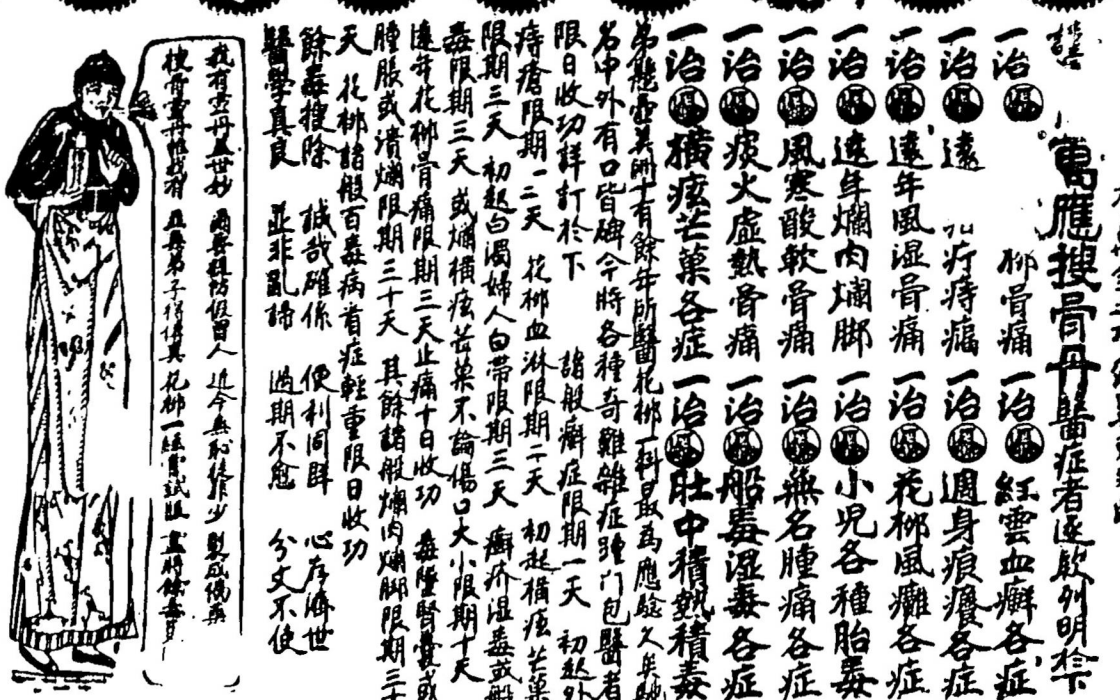 萬應搜骨丹醫症者逐款列明於下
一治 柳骨痛 一治 紅雲血癬各症
一治 遠 疔痔瘟 一治 週身痕癢各症
一治 遠年風湿骨痛 一治 花柳風癱各症
一治 遠年爛肉爛脚 一治 小児各種胎毒
一治 風寒酸軟骨痛 一治 無名腫痛各症
一治 痰火虛熱骨痛 一治 船毒湿毒各症
一治 横痃芒菓各症 一治 肚中積熱積毒
弟懸壺美洲十有餘年所醫花柳一科最為應驗久年馳
名中外有口皆碑今將各種奇難雜症踵门包醫者
限日收功詳訂於下 諸般癬症限期一天 初起外
痔瘡限期一二天 花柳血淋限期二天 初起横痃芒菓
限期三天 初起白濁婦人白帶限期三天 癬疥湿毒或船
毒限期三天 或爛横痃芒菓不論傷口大小限期十天
遠年花柳骨痛限期三天止痛十日收功 毒腫腎囊或
腫脹或潰爛限期三十天 其餘諸般爛肉爛脚限期三十
天 花柳諸般百毒病者症輕重限日收功
餘毒搜除 誠哉確係 便利同群 心存濟世
醫學真良 並非亂諦 過期不愈 分文不使
我有靈丹蓋世妙 假冒人 近今無恥 少 製成偽藥
搜骨靈丹惟我有 並無弟子得傳真 花柳一經嘗試 盡將餘毒